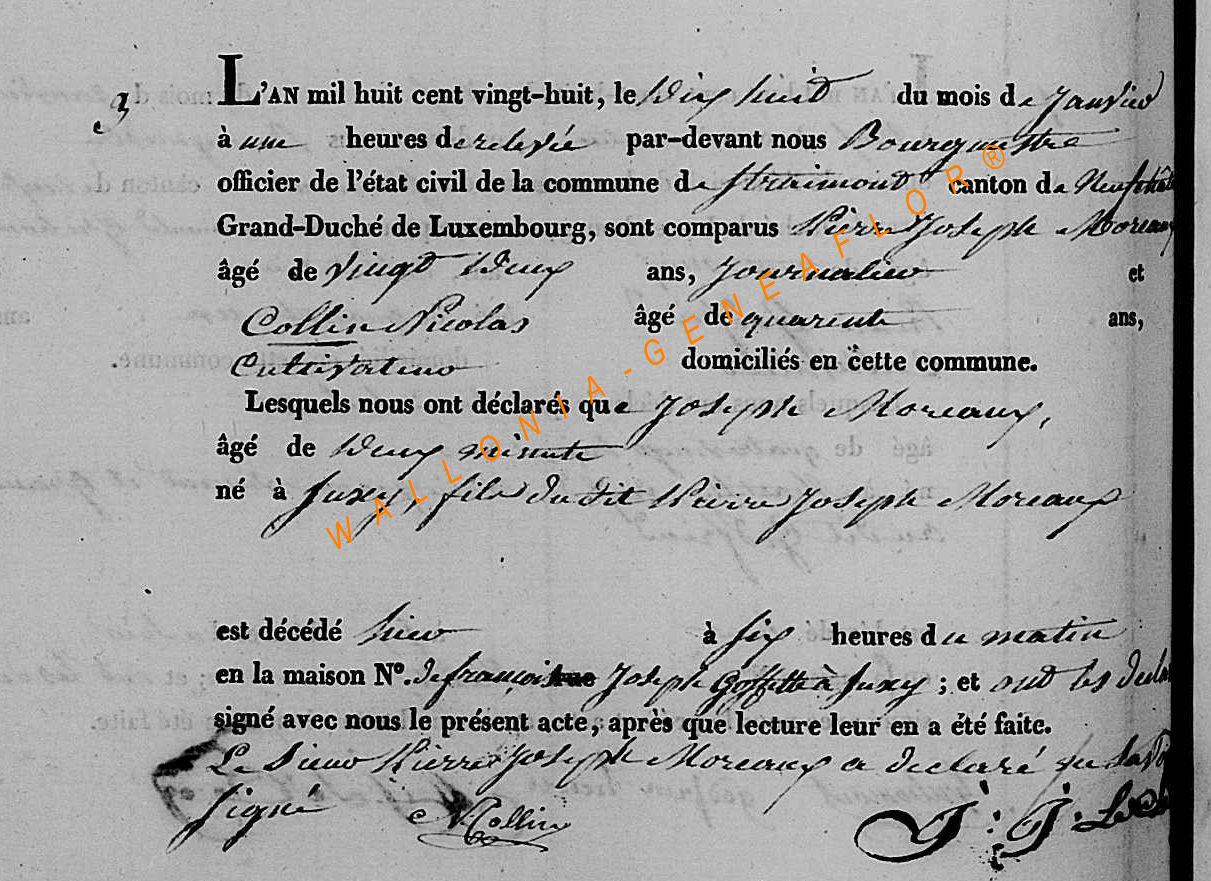 3
L'AN mil huit cent vingt-huit, le Dix huit du mois de Janvier
à une heures de relevée par-devant nous Bourgmestre
officier de l'état civil de la commune de Straimont canton de Neufchât
Grand-Duché de Luxembourg, sont comparus Pierre Joseph Moreaux
âgé de vingt Deux ans, Journalier et
Collin Nicolas âgé de quarente ans,
Cultivateur domiciliés en cette commune.
Lesquels nous ont déclarés que Joseph Moreaux,
âgé de Deux minute
né à Suxy, fils du dit Pierre Joseph Moreaux
est décédé hier à six heures du matin
en la maison N°. de françois rue Joseph Goffette à Suxy ; et ont les decla
signé avec nous le présent acte, après que lecture leur en a été faite.
Le Sieur Pierre Joseph Moreaux a declaré
signé N Collin J: J:
WALLONIA-GENEAFLOR®